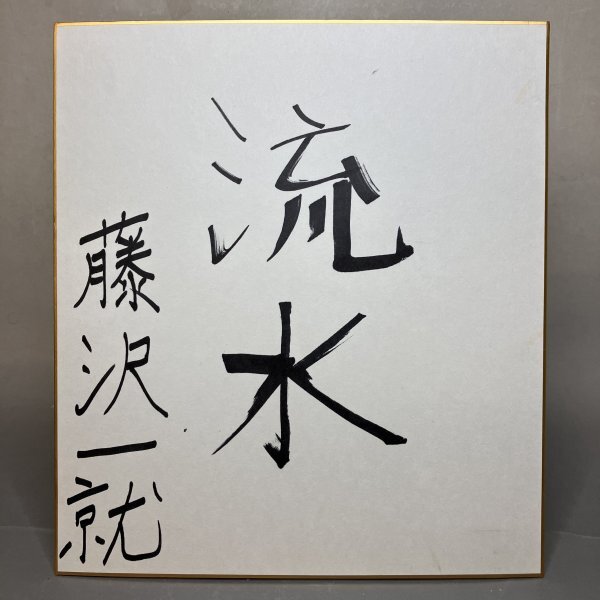 流水
藤沢一就